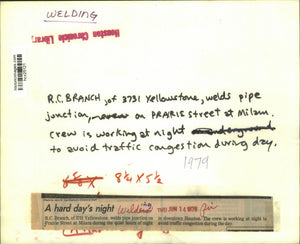 WELDING
Houston Chronicle Library
R.C. BRANCH, of 3731 Yellowstone, welds pipe
junction, on PRAIRIE street at Milam.
crew is working at night underground
to avoid traffic congestion during day.
1979
8¼ X 5½
A hard day's night
Welding
TWO JUN 14 1979
R.C. Branch, of 3731 Yellowstone, welds pipe junction on
Prairie Street at Milam during the quiet hours of night
in downtown Houston. The crew is working at night to
avoid traffic congestion during the day.